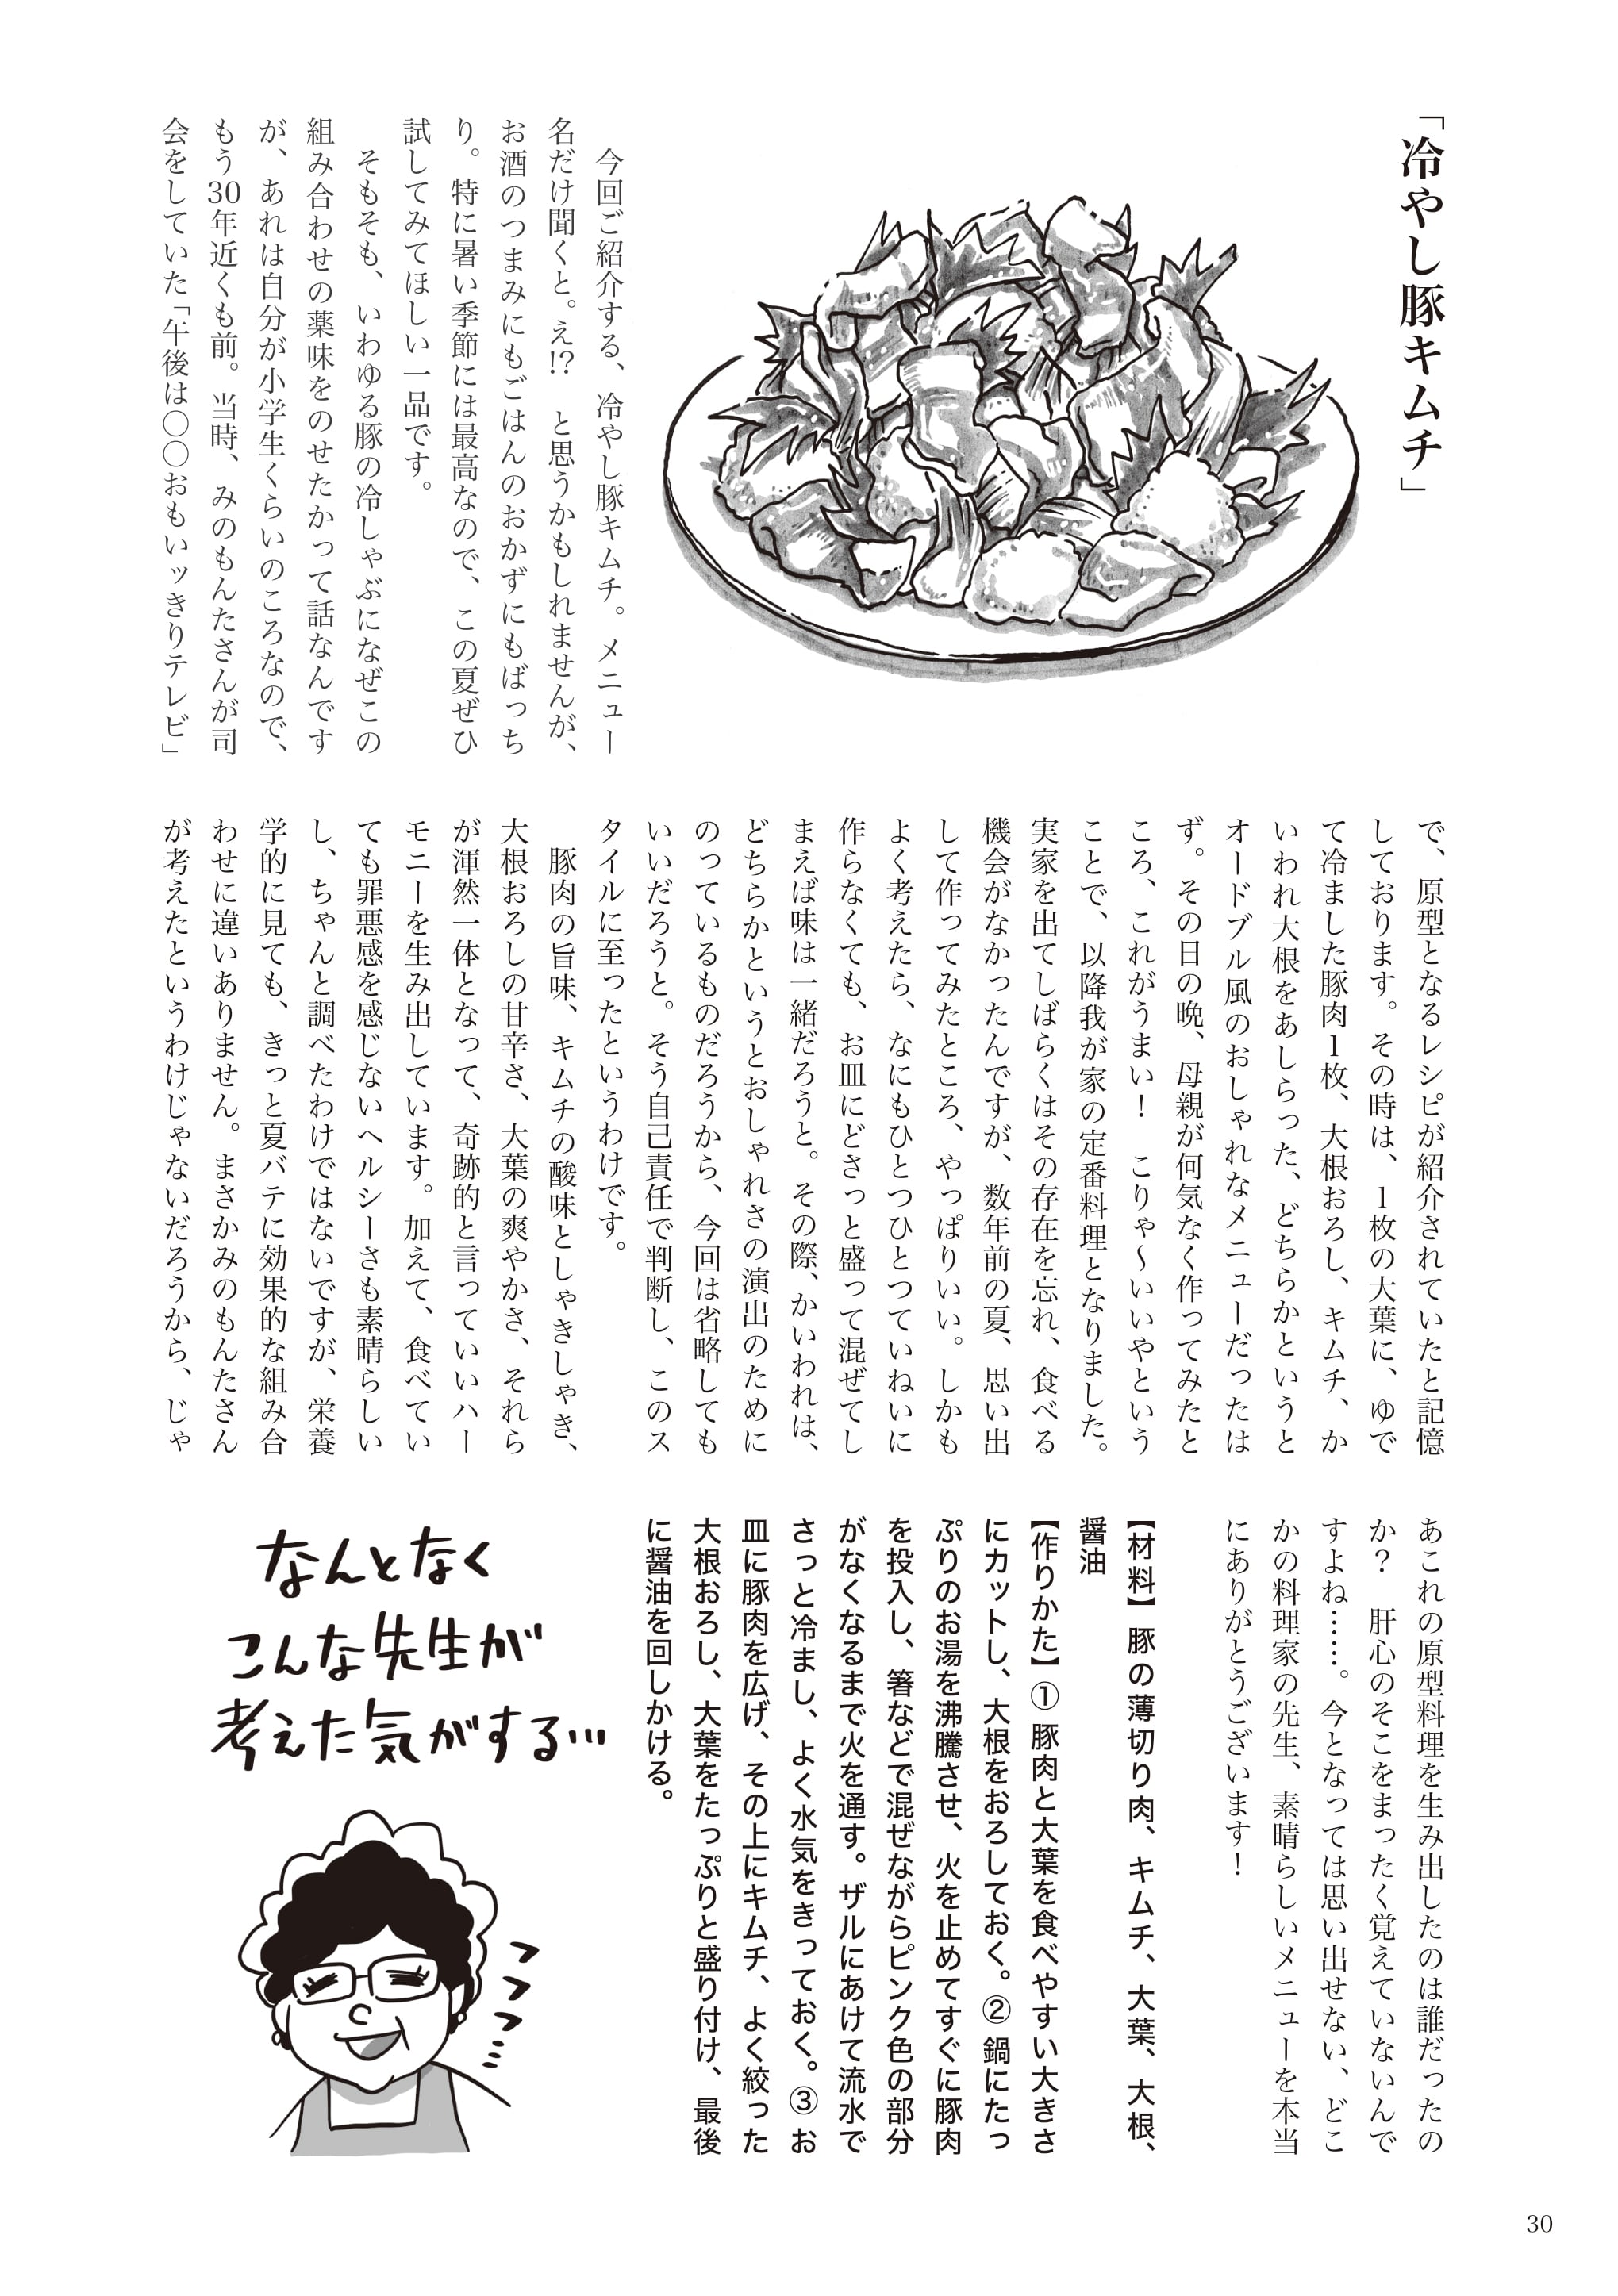 「冷やし豚キムチ」
　今回ご紹介する、冷やし豚キムチ。メニュー
名だけ聞くと。え!?　と思うかもしれませんが、
お酒のつまみにもごはんのおかずにもばっち
り。特に暑い季節には最高なので、この夏ぜひ
試してみてほしい一品です。
　そもそも、いわゆる豚の冷しゃぶになぜこの
組み合わせの薬味をのせたかって話なんです
が、あれは自分が小学生くらいのころなので、
もう30年近くも前。当時、みのもんたさんが司
会をしていた「午後は〇〇おもいッきりテレビ」
で、原型となるレシピが紹介されていたと記憶
しております。その時は、1枚の大葉に、ゆで
て冷ました豚肉1枚、大根おろし、キムチ、か
いわれ大根をあしらった、どちらかというと
オードブル風のおしゃれなメニューだったは
ず。その日の晩、母親が何気なく作ってみたと
ころ、これがうまい！　こりゃ〜いいやという
ことで、以降我が家の定番料理となりました。
実家を出てしばらくはその存在を忘れ、食べる
機会がなかったんですが、数年前の夏、思い出
して作ってみたところ、やっぱりいい。しかも
よく考えたら、なにもひとつひとつていねいに
作らなくても、お皿にどさっと盛って混ぜてし
まえば味は一緒だろうと。その際、かいわれは、
どちらかというとおしゃれさの演出のために
のっているものだろうから、今回は省略しても
いいだろうと。そう自己責任で判断し、このス
タイルに至ったというわけです。
　豚肉の旨味、キムチの酸味としゃきしゃき、
大根おろしの甘辛さ、大葉の爽やかさ、それら
が渾然一体となって、奇跡的と言っていいハー
モニーを生み出しています。加えて、食べてい
ても罪悪感を感じないヘルシーさも素晴らしい
し、ちゃんと調べたわけではないですが、栄養
学的に見ても、きっと夏バテに効果的な組み合
わせに違いありません。まさかみのもんたさん
が考えたというわけじゃないだろうから、じゃ
あこれの原型料理を生み出したのは誰だったの
か？　肝心のそこをまったく覚えていないんで
すよね……。今となっては思い出せない、どこ
かの料理家の先生、素晴らしいメニューを本当
にありがとうございます！
【材料】豚の薄切り肉、キムチ、大葉、大根、
醤油
【作りかた】① 豚肉と大葉を食べやすい大きさ
にカットし、大根をおろしておく。② 鍋にたっ
ぷりのお湯を沸騰させ、火を止めてすぐに豚肉
を投入し、箸などで混ぜながらピンク色の部分
がなくなるまで火を通す。ザルにあけて流水で
さっと冷まし、よく水気をきっておく。③ お
皿に豚肉を広げ、その上にキムチ、よく絞った
大根おろし、大葉をたっぷりと盛り付け、最後
に醤油を回しかける。
なんとなく
こんな先生が
考えた気がする…
フフフ…
30